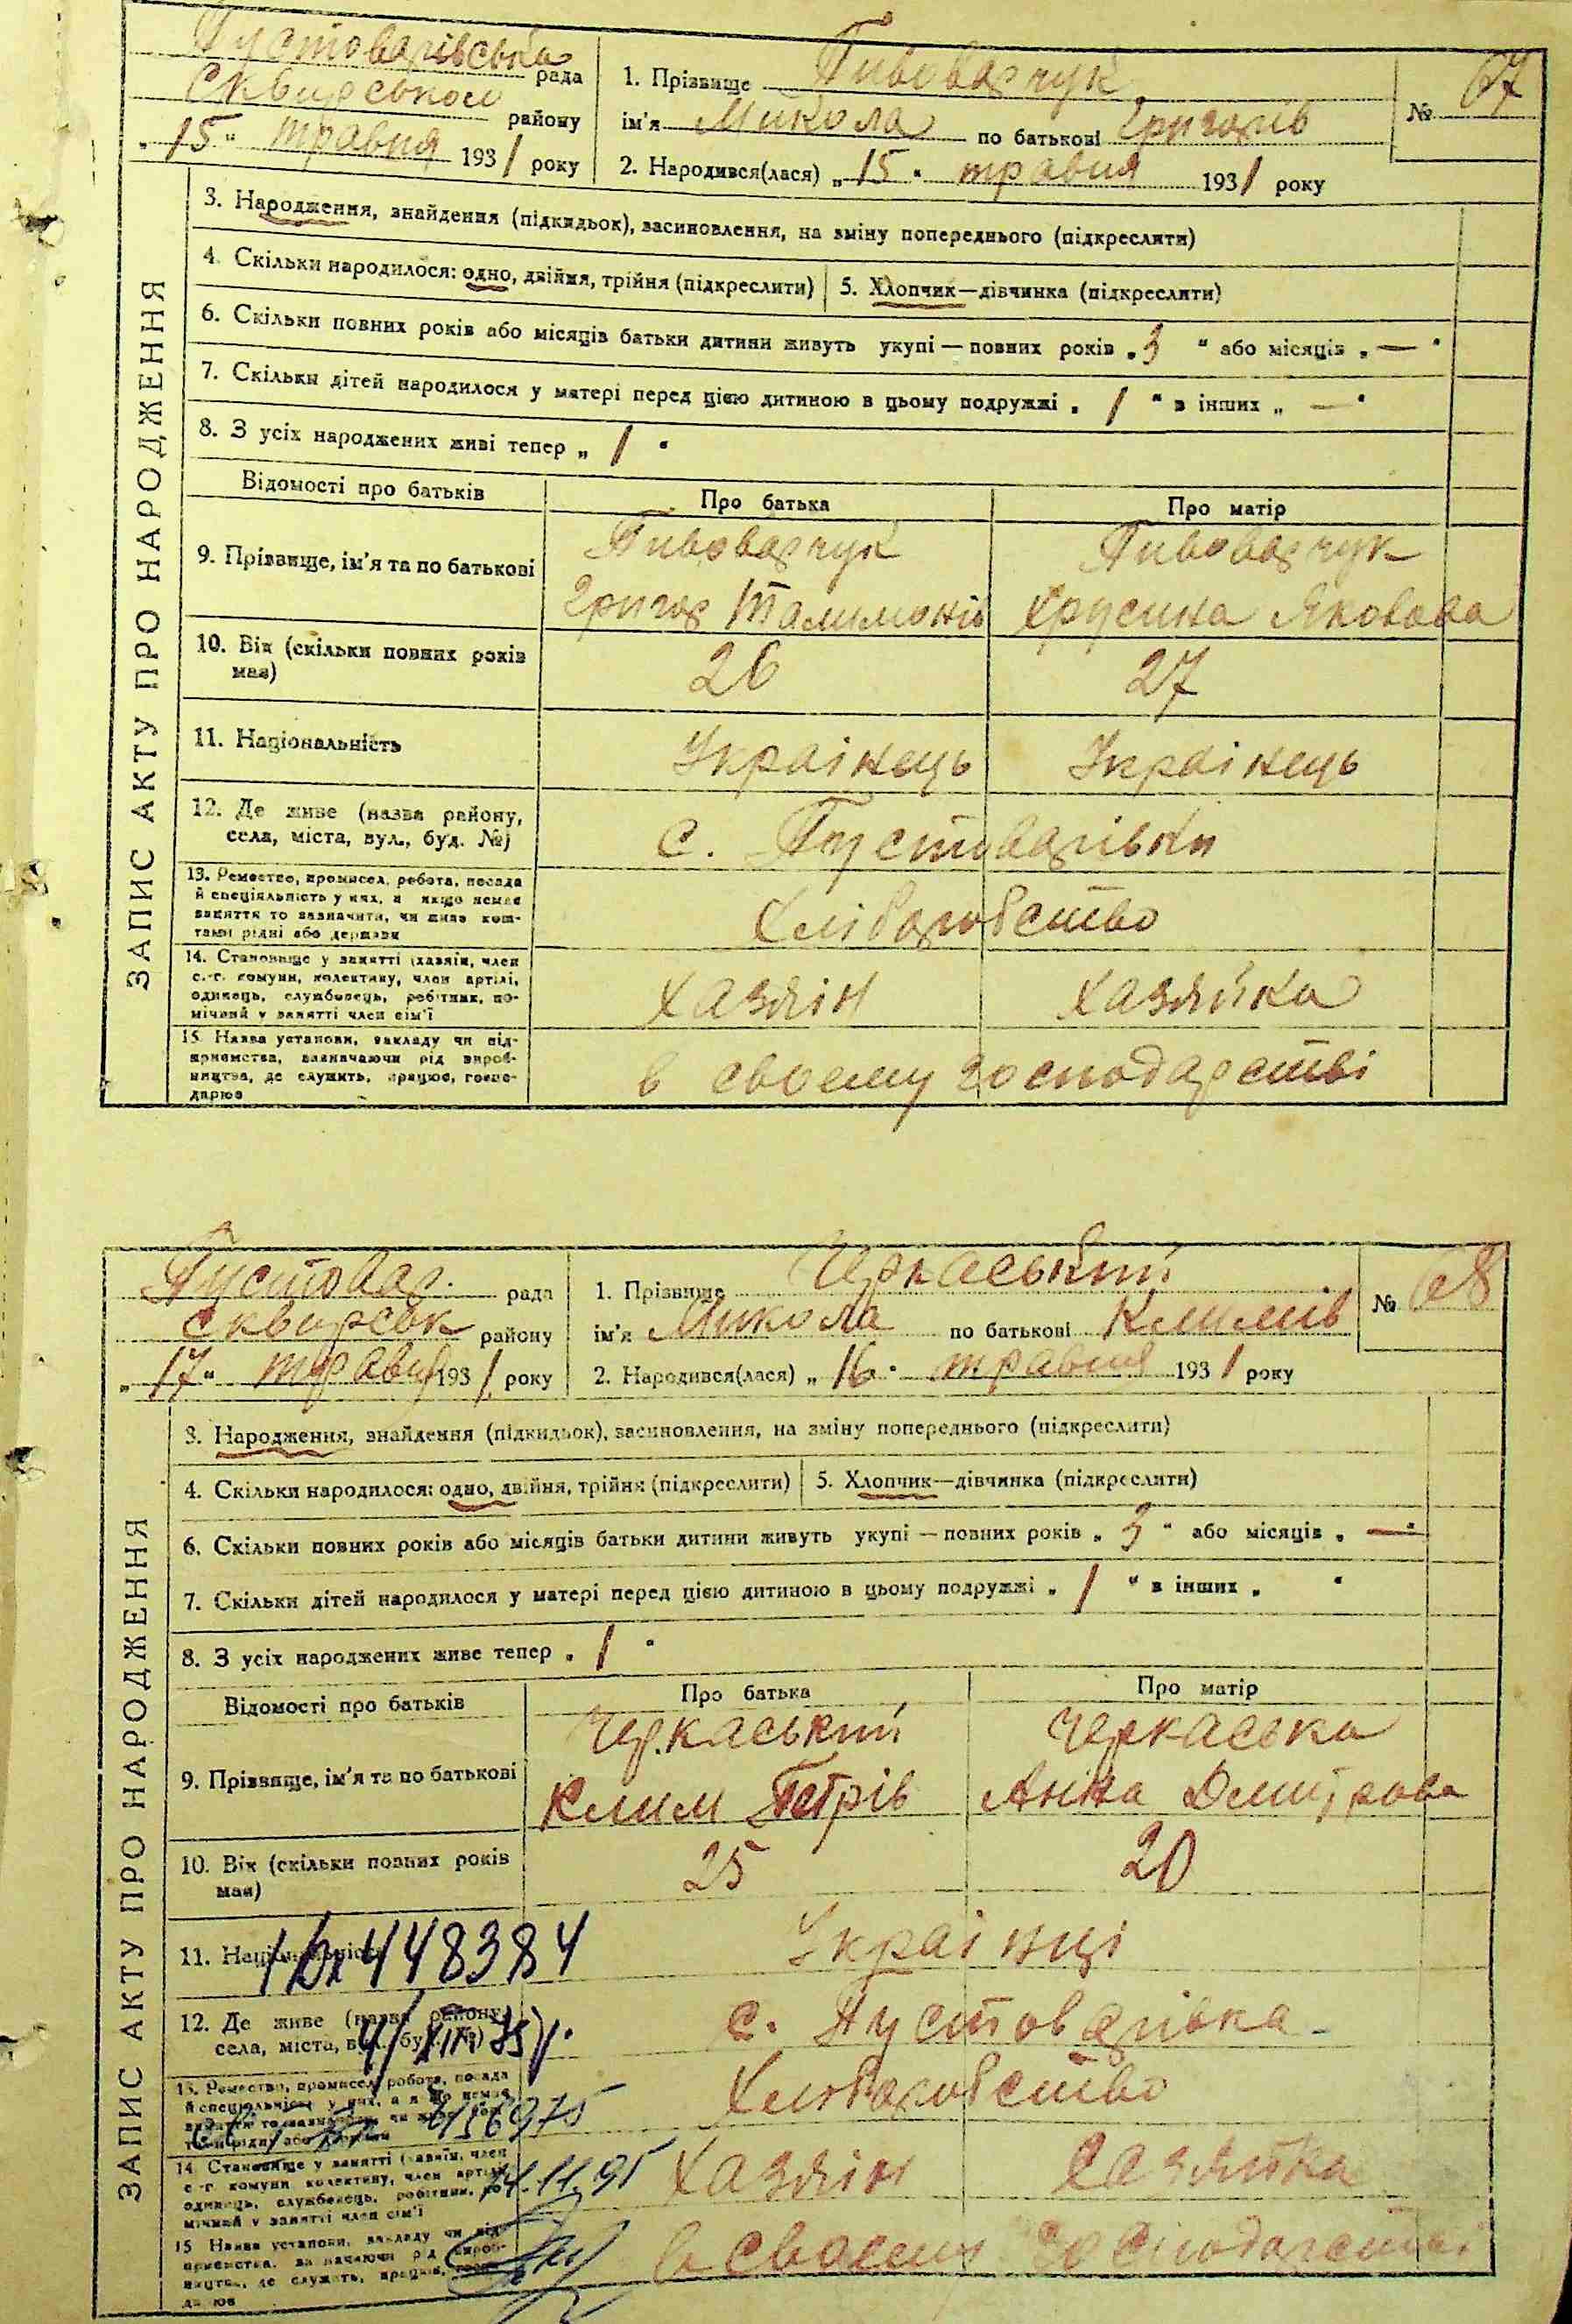 Пустоварівська рада
Сквирського району
„15“ травня 1931 року
1. Прізвище Пивоварчук
ім'я Микола по батькові Григорів
2. Народився(лася) „15“ травня 1931 року
№ 67
ЗАПИС АКТУ ПРО НАРОДЖЕННЯ
3. Народження, знайдення (підкидьок), засиновлення, на зміну попереднього (підкреслити)
4. Скільки народилося: одно, двійня, трійня (підкреслити) 5. Хлопчик—дівчинка (підкреслити)
6. Скільки повних років або місяців батьки дитини живуть укупі — повних років „3“ або місяців „—“
7. Скільки дітей народилося у матері перед цією дитиною в цьому подружжі „1“ в інших „—“
8. З усіх народжених живі тепер „1“
Відомості про батьків Про батька Про матір
9. Прізвище, ім'я та по батькові
Пивоварчук Пивоварчук
Григор Талимонів Хрусина Яковова
10. Вік (скільки повних років має) 26 27
11. Національність Українець Українець
12. Де живе (назва району,
села, міста, вул., буд. №)
с. Пустоварівки
13. Ремество, промисел, робота, посада
й спеціяльність у них, а якщо немає
заняття то зазначити, чи живе кош-
тами рідні або держави
Хліборобство
14. Становище у занятті (хазяїн, член
с.-г. комуни, колективу, член артілі,
одинець, службовець, робітник, по-
мічний у занятті член сім'ї
Хазяїн Хазяйка
15. Назва установи, закладу чи під-
приємства, зазначаючи рід вироб-
ництва, де служить, працює, госпо-
дарює
в своєму господарстві
Пустовар. рада
Сквирськ району
„17“ травня 1931 року
1. Прізвище Черкаський
ім'я Микола по батькові Климів
2. Народився(лася) „16“ травня 1931 року
№ 68
ЗАПИС АКТУ ПРО НАРОДЖЕННЯ
3. Народження, знайдення (підкидьок), засиновлення, на зміну попереднього (підкреслити)
4. Скільки народилося: одно, двійня, трійня (підкреслити) 5. Хлопчик—дівчинка (підкреслити)
6. Скільки повних років або місяців батьки дитини живуть укупі — повних років „3“ або місяців „—“
7. Скільки дітей народилося у матері перед цією дитиною в цьому подружжі „1“ в інших „ “
8. З усіх народжених живе тепер „1“
Відомості про батьків Про батька Про матір
9. Прізвище, ім'я та по батькові
Черкаський Черкаська
Клим Петрів Анна Дмитрова
10. Вік (скільки повних років
має)
25 20
11. Національність Українці
448384
12. Де живе (назва району,
села, міста, вул., буд. №)
с. Пустоварівка
13. Ремество, промисел, робота, посада
й спеціяльність у них, а якщо немає
заняття то зазначити, чи живе кош-
тами рідні або держави
Хліборобство
14. Становище у занятті (хазяїн, член
с.-г. комуни, колективу, член артілі,
одинець, службовець, робітник, по-
мічний у занятті член сім'ї
14.11.95
Хазяїн Хазяйка
15. Назва установи, закладу чи під-
приємства, зазначаючи рід вироб-
ництва, де служить, працює, госпо-
дарює
в своєму господарстві